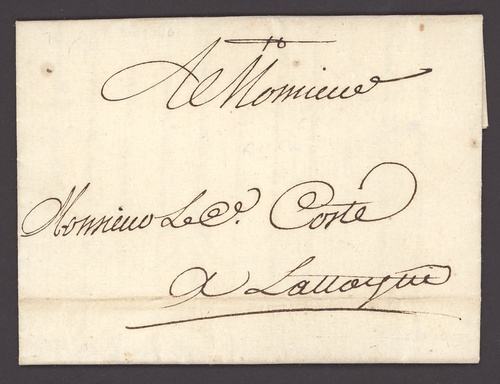 16
A Monsieur
Monsieur Le Cte. Coste
a Lauoryni